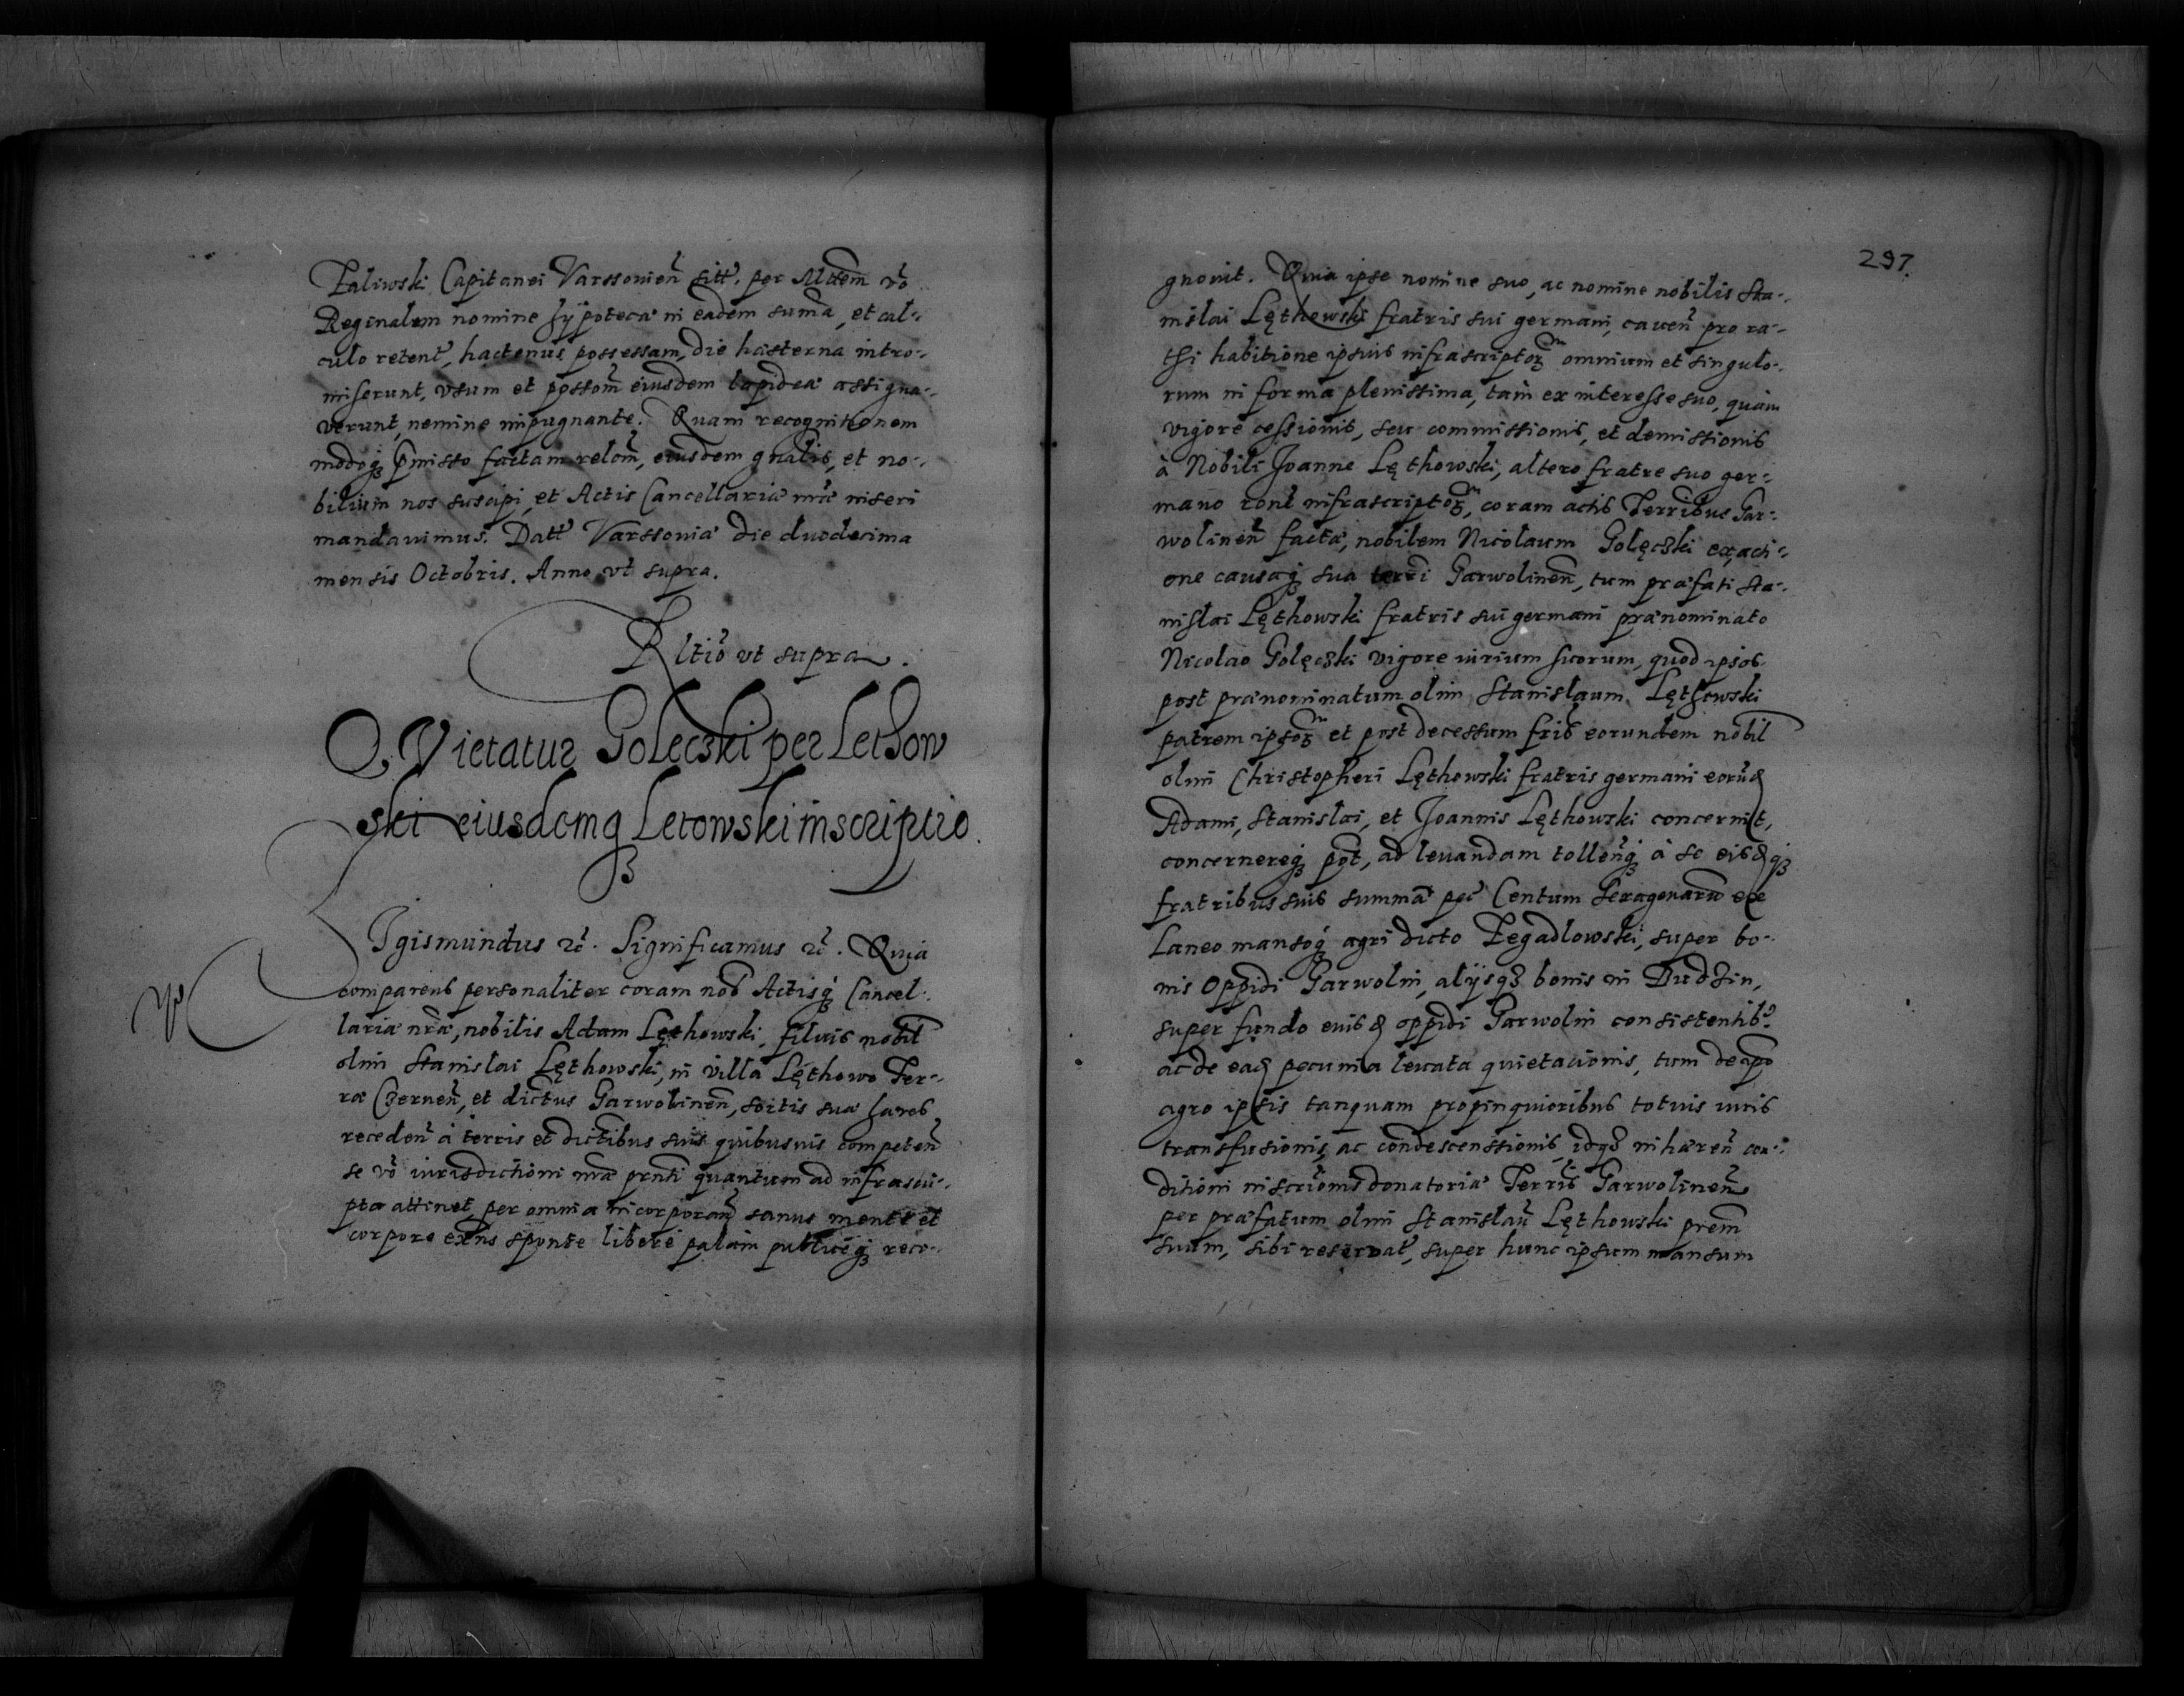 Zaliwski Capitanei Varssovien̄ sitt̃. per Mttem̄ vō
Reginalem nomine hÿpotecæ in eadem suma͂, et cal-
culo retent̃, hactenus possessam, die hæsterna intro-
miserunt, vsum et possom̄ eiusdem lapideæ assigna-
verunt, nemine impugnante. Quam recognitionem
modoq́ꝫ p̄misso factam relom̄, eiusdem gn̄alis, et no-
bilium nos suscipi, et Actis Cancellariæ nr̃æ inseri
mandavimus. Datt̃ Varssoviæ die duodecima
mensis Octobris. Anno vt supra.
Rltiō vt supra.
Quietatur Goleczki per Lethow
ski eiusdemqꝫ Letowski inscriptio.
Sigismundus ⁊c̃. Significamus ⁊c̃. Quia
comparens personaliter coram nob̃ Actisq́ꝫ Cancel-
lariæ nr̃æ, nobilis Adam Lęthowski, filius nobil̃
olim Stanislai Lęthowski, in villa Lęthowo Ter-
ræ Czernen̄, et dictus Garwolinen̄, sortis suæ hæres
receden̄ à terris et dictibus suis quibusuis competen̄
se vō iurisdictioni nr̃æ prn̄ti quantum ad infrascri-
pta attinet, per omnia incorporan̄ sanus mente et
corpore exn̄s sponte libere palam publiceq́ꝫ reco-
297.
gnovit. Quia ipse nomine suo, ac nomine nobilis Sta-
nislai Lęthowski fratris sui germani, caven̄ pro ra-
thi habitione ipsius infrascriptoꝝ omnium et singulo-
rum in forma plenissima, tam ex interesse suo, quàm
vigore cessionis, seu commissionis, et demissionis
à Nobili Joanne Lęthowski, altero fratre suo ger-
mano ronē infrascriptoꝝ, coram actis Terrībus Gar-
wolinen̄ factæ, nobilem Nicolaum Golęczki ex, acti-
one causaq́ꝫ sua terri̅ Garwolinen̄, tum præfati Sta-
nislai Lęthowski fratris sui germani prænominato
Nicolao Golęczki vigore iurium suorum, quod ipsos
post prænominatum olim Stanislaum Lęthowski
patrem ipsoꝝ et post decessum frīs eorundem nobil̃
olim Christopheri Lęthowski fratris germani eorūd̨
Adami, Stanislai, et Joannis Lęthowski concernit,
concernereq́ꝫ pōt, ad levandam tollen̄q́ꝫ à se eisd̨qꝫ
fratribus suis summā pec̃ Centum Sexagenarū exe
Laneo mansoq́ꝫ agri dicto Zegadlowski, super bo-
nis Oppidi Garwolin, alÿsqꝫ bonis in Budzin,
super fundo eiusd̨ oppidi Garwolin consistentib⁹
ac de ead̨ pecunia levata quietationis, tum de ip̄o
agro ipsis tanquam propinquioribus totius iuris
transfusionis, ac condescenssionis, idqꝫ inhæren̄ con-
ditioni inscrīonis donatoriæ Terrīs Garwolinen̄
per præfatum olim Stanislaū Lęthowski prēm
suum, sibi reservat̃, super hunc ipsum mansum